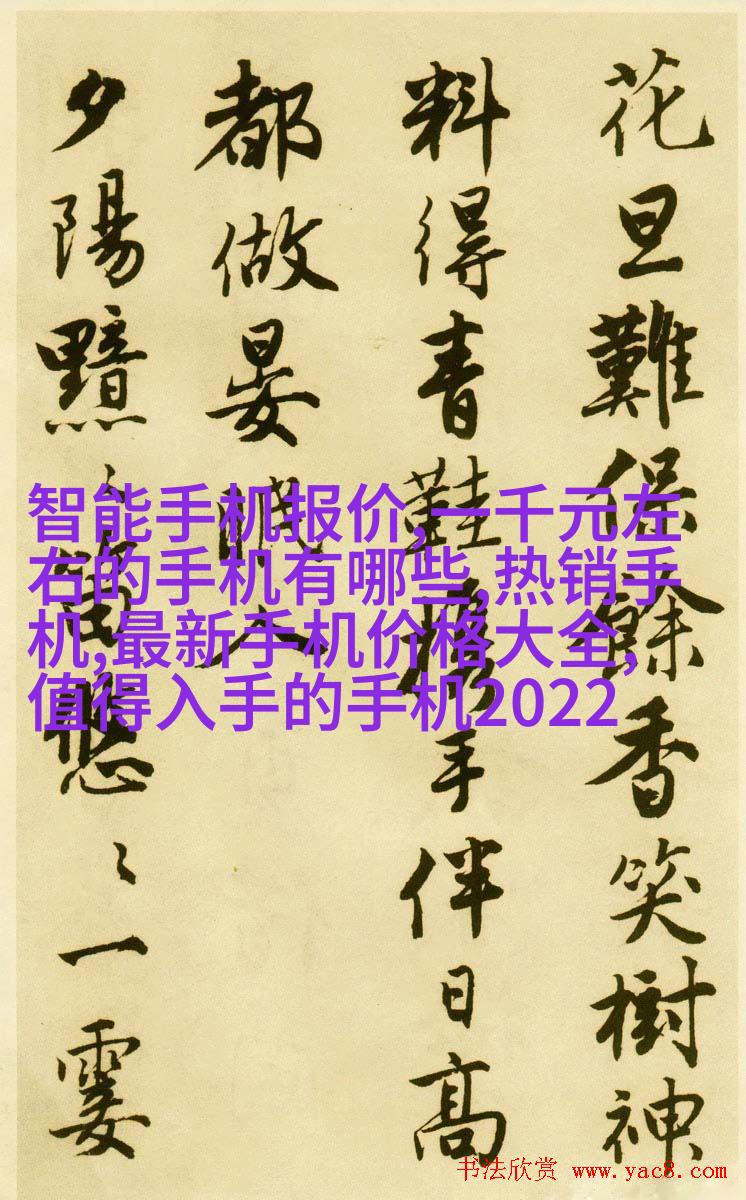 花旦難保餘香笑樹神
料得青鞋携手伴日高
都做晏眠人
夕陽黯〻笛悠〻一霎
智能手机报价,一千元左
右的手机有哪些,热销手
机,最新手机价格大全,
值得入手的手机2022
书法欣赏 www.yac8.com